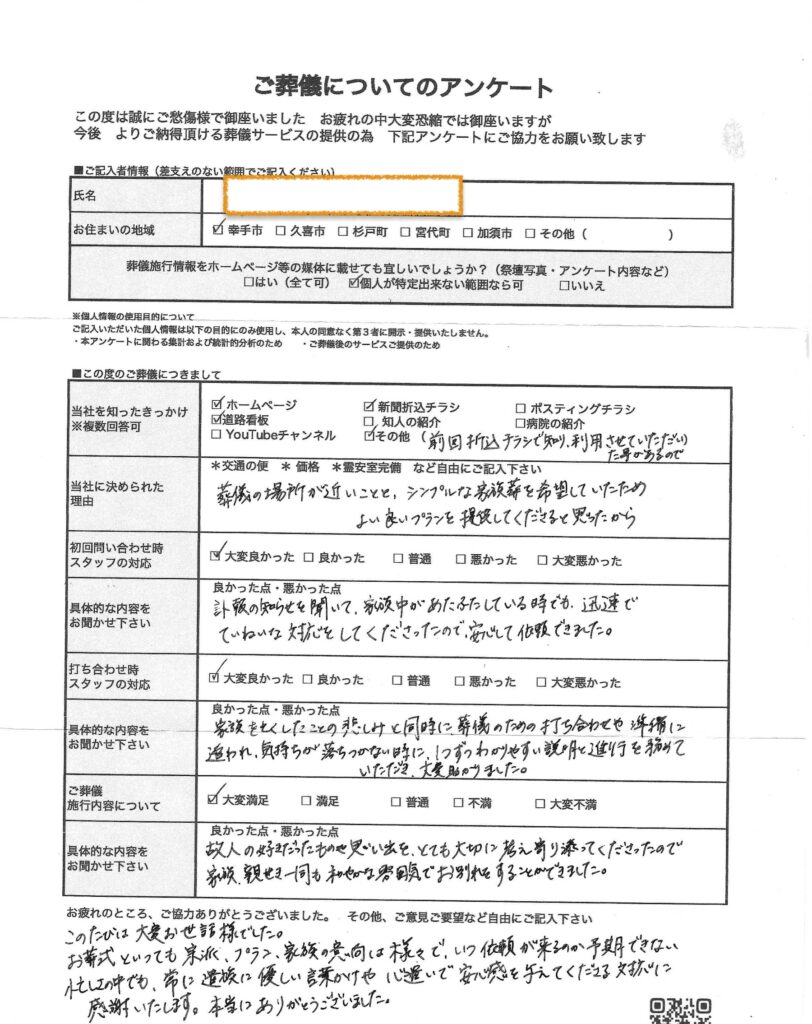 ご葬儀についてのアンケート
この度は誠にご愁傷様で御座いました　お疲れの中大変恐縮では御座いますが
今後　よりご納得頂ける葬儀サービスの提供の為　下記アンケートにご協力をお願い致します
■ご記入者情報（差支えのない範囲でご記入ください）
氏名
お住まいの地域　☑幸手市　□久喜市　□杉戸町　□宮代町　□加須市　□その他（　　　　　）
葬儀施行情報をホームページ等の媒体に載せても宜しいでしょうか？（祭壇写真・アンケート内容など）
□はい（全て可）　☑個人が特定出来ない範囲なら可　□いいえ
※個人情報の使用目的について
ご記入いただいた個人情報は以下の目的にのみ使用し、本人の同意なく第３者に開示・提供いたしません。
・本アンケートに関わる集計および統計的分析のため　・ご葬儀後のサービスご提供のため
■この度のご葬儀につきまして
当社を知ったきっかけ
※複数回答可
☑ホームページ　☑新聞折込チラシ　□ポスティングチラシ
☑道路看板　□知人の紹介　□病院の紹介
□YouTubeチャンネル　☑その他（前回折込チラシで知り、利用させていただい）
た事があるので
当社に決められた
理由
＊交通の便　＊価格　＊霊安室完備　など自由にご記入下さい
葬儀の場所が近いことと、シンプルな家族葬を希望していたため
よい良いプランを提供してくださると思ったから
初回問い合わせ時
スタッフの対応
☑大変良かった　□良かった　□普通　□悪かった　□大変悪かった
具体的な内容を
お聞かせ下さい
良かった点・悪かった点
訃報の知らせを聞いて、家族中があたふたしている時でも、迅速で
ていねいな対応をしてくださったので、安心して依頼できました。
打ち合わせ時
スタッフの対応
☑大変良かった　□良かった　□普通　□悪かった　□大変悪かった
具体的な内容を
お聞かせ下さい
良かった点・悪かった点
家族を亡くしたことの悲しみと同時に葬儀のための打ち合わせや準備に
追われ、気持ちが落ちつかない時に、1つずつわかりやすい説明と進行を務めて
いただき、大変助かりました。
ご葬儀
施行内容について
☑大変満足　□満足　□普通　□不満　□大変不満
具体的な内容を
お聞かせ下さい
良かった点・悪かった点
故人の好きだったものや思い出を、とても大切に考え寄り添ってくださったので
家族、親せき一同も和やかな雰囲気でお別れをすることができました。
お疲れのところ、ご協力ありがとうございました。　その他、ご意見ご要望など自由にご記入下さい
このたびは大変お世話様でした。
お葬式といっても宗派、プラン、家族の意向は様々で、いつ依頼が来るのか予期できない
忙しさの中でも、常に遺族に優しい言葉かけや心遣いで安心感を与えてくださる対応に
感謝いたします。本当にありがとうございました。